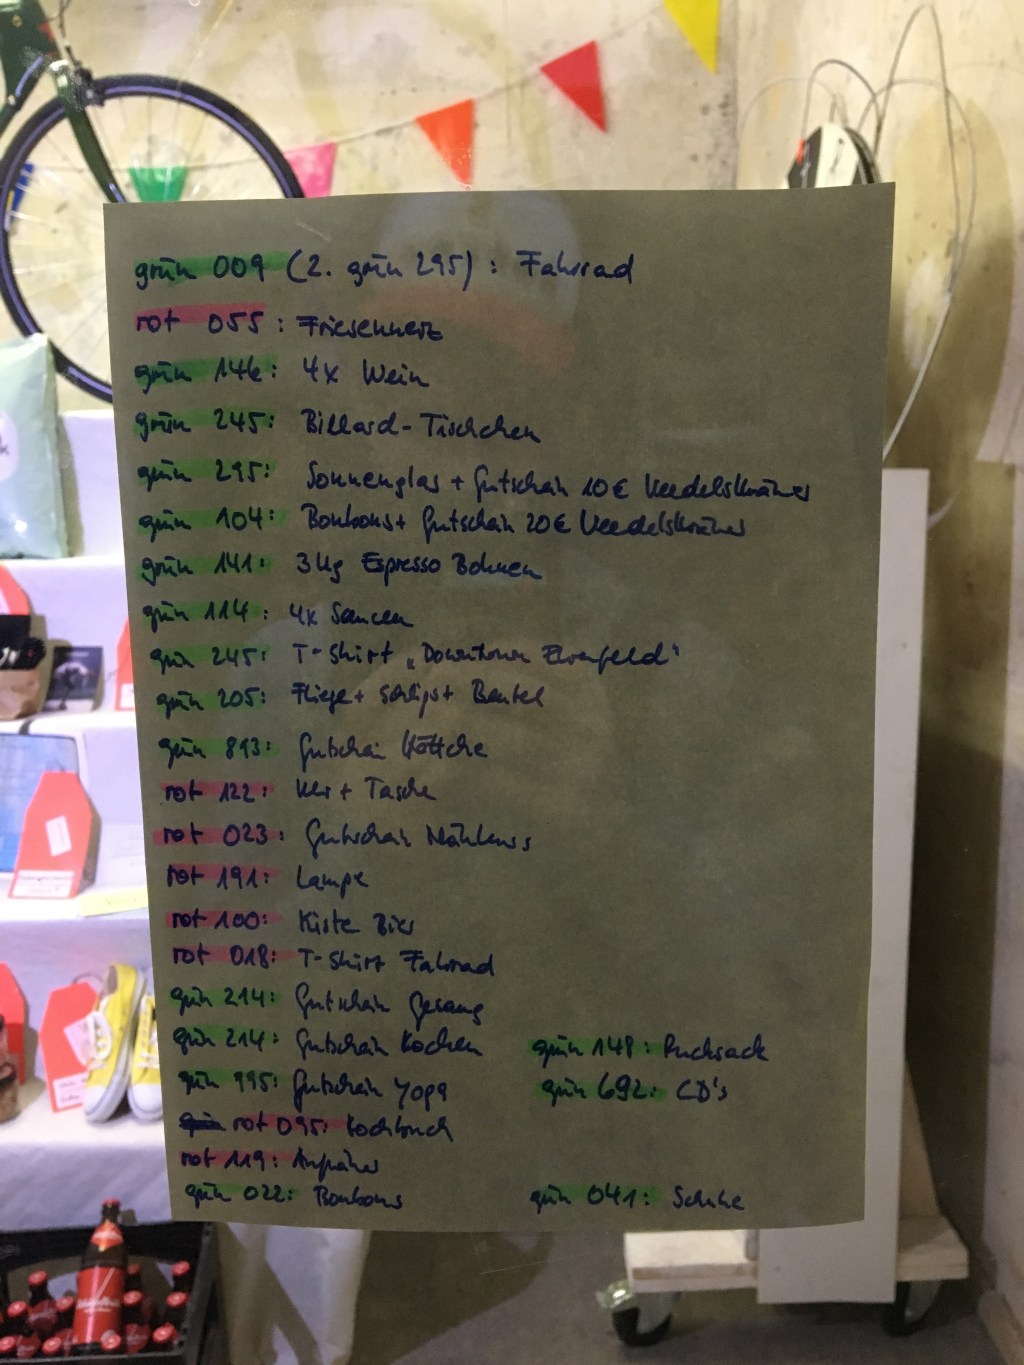 grün 009 (2. grün 295) : Fahrrad
rot 055 : Friesennerz
grün 146: 4x Wein
grün 245: Billard-Tischchen
grün 295: Sonnenglas + Gutschein 10€ Veedelskrämer
grün 104: Bonbons + Gutschein 20€ Veedelskrämer
grün 141: 3 kg Espresso Bohnen
grün 114: 4x Saucen
grün 245: T-Shirt „Downtown Ehrenfeld"
grün 205: Fliege + Schlips + Beutel
grün 813: Gutschein Höttche
rot 122: Uhr + Tasche
rot 023: Gutschein Nähkurs
rot 191: Lampe
rot 100: Kiste Bier
rot 018: T-Shirt Fahrrad
grün 214: Gutschein Gesang
grün 214: Gutschein Kochen
grün 148: Rucksack
grün 995: Gutschein Yoga
grün 692: CD's
rot 095: Kochbuch
rot 119:
grün 022: Bonbons
grün 041: Schuhe